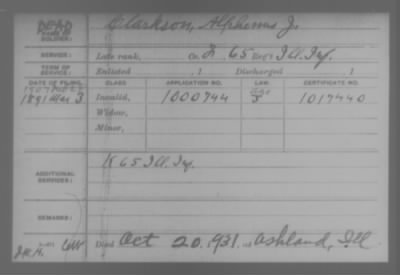 DEAD
NAME OF SOLDIER: Clarkson, Alpheus J.
SERVICE: Late rank, Co. K, 65 Reg't Ill. Inf.
TERM OF SERVICE: Enlisted , 1 Discharged , 1
DATE OF FILING. CLASS. APPLICATION NO. LAW. CERTIFICATE NO.
1891 Mar 3 Invalid, 1000744 Age 1017440
Widow,
Minor,
ADDITIONAL SERVICES: K 65 Ill. Inf.
REMARKS:
Died Oct 20, 1931, at Ashland, Ill.